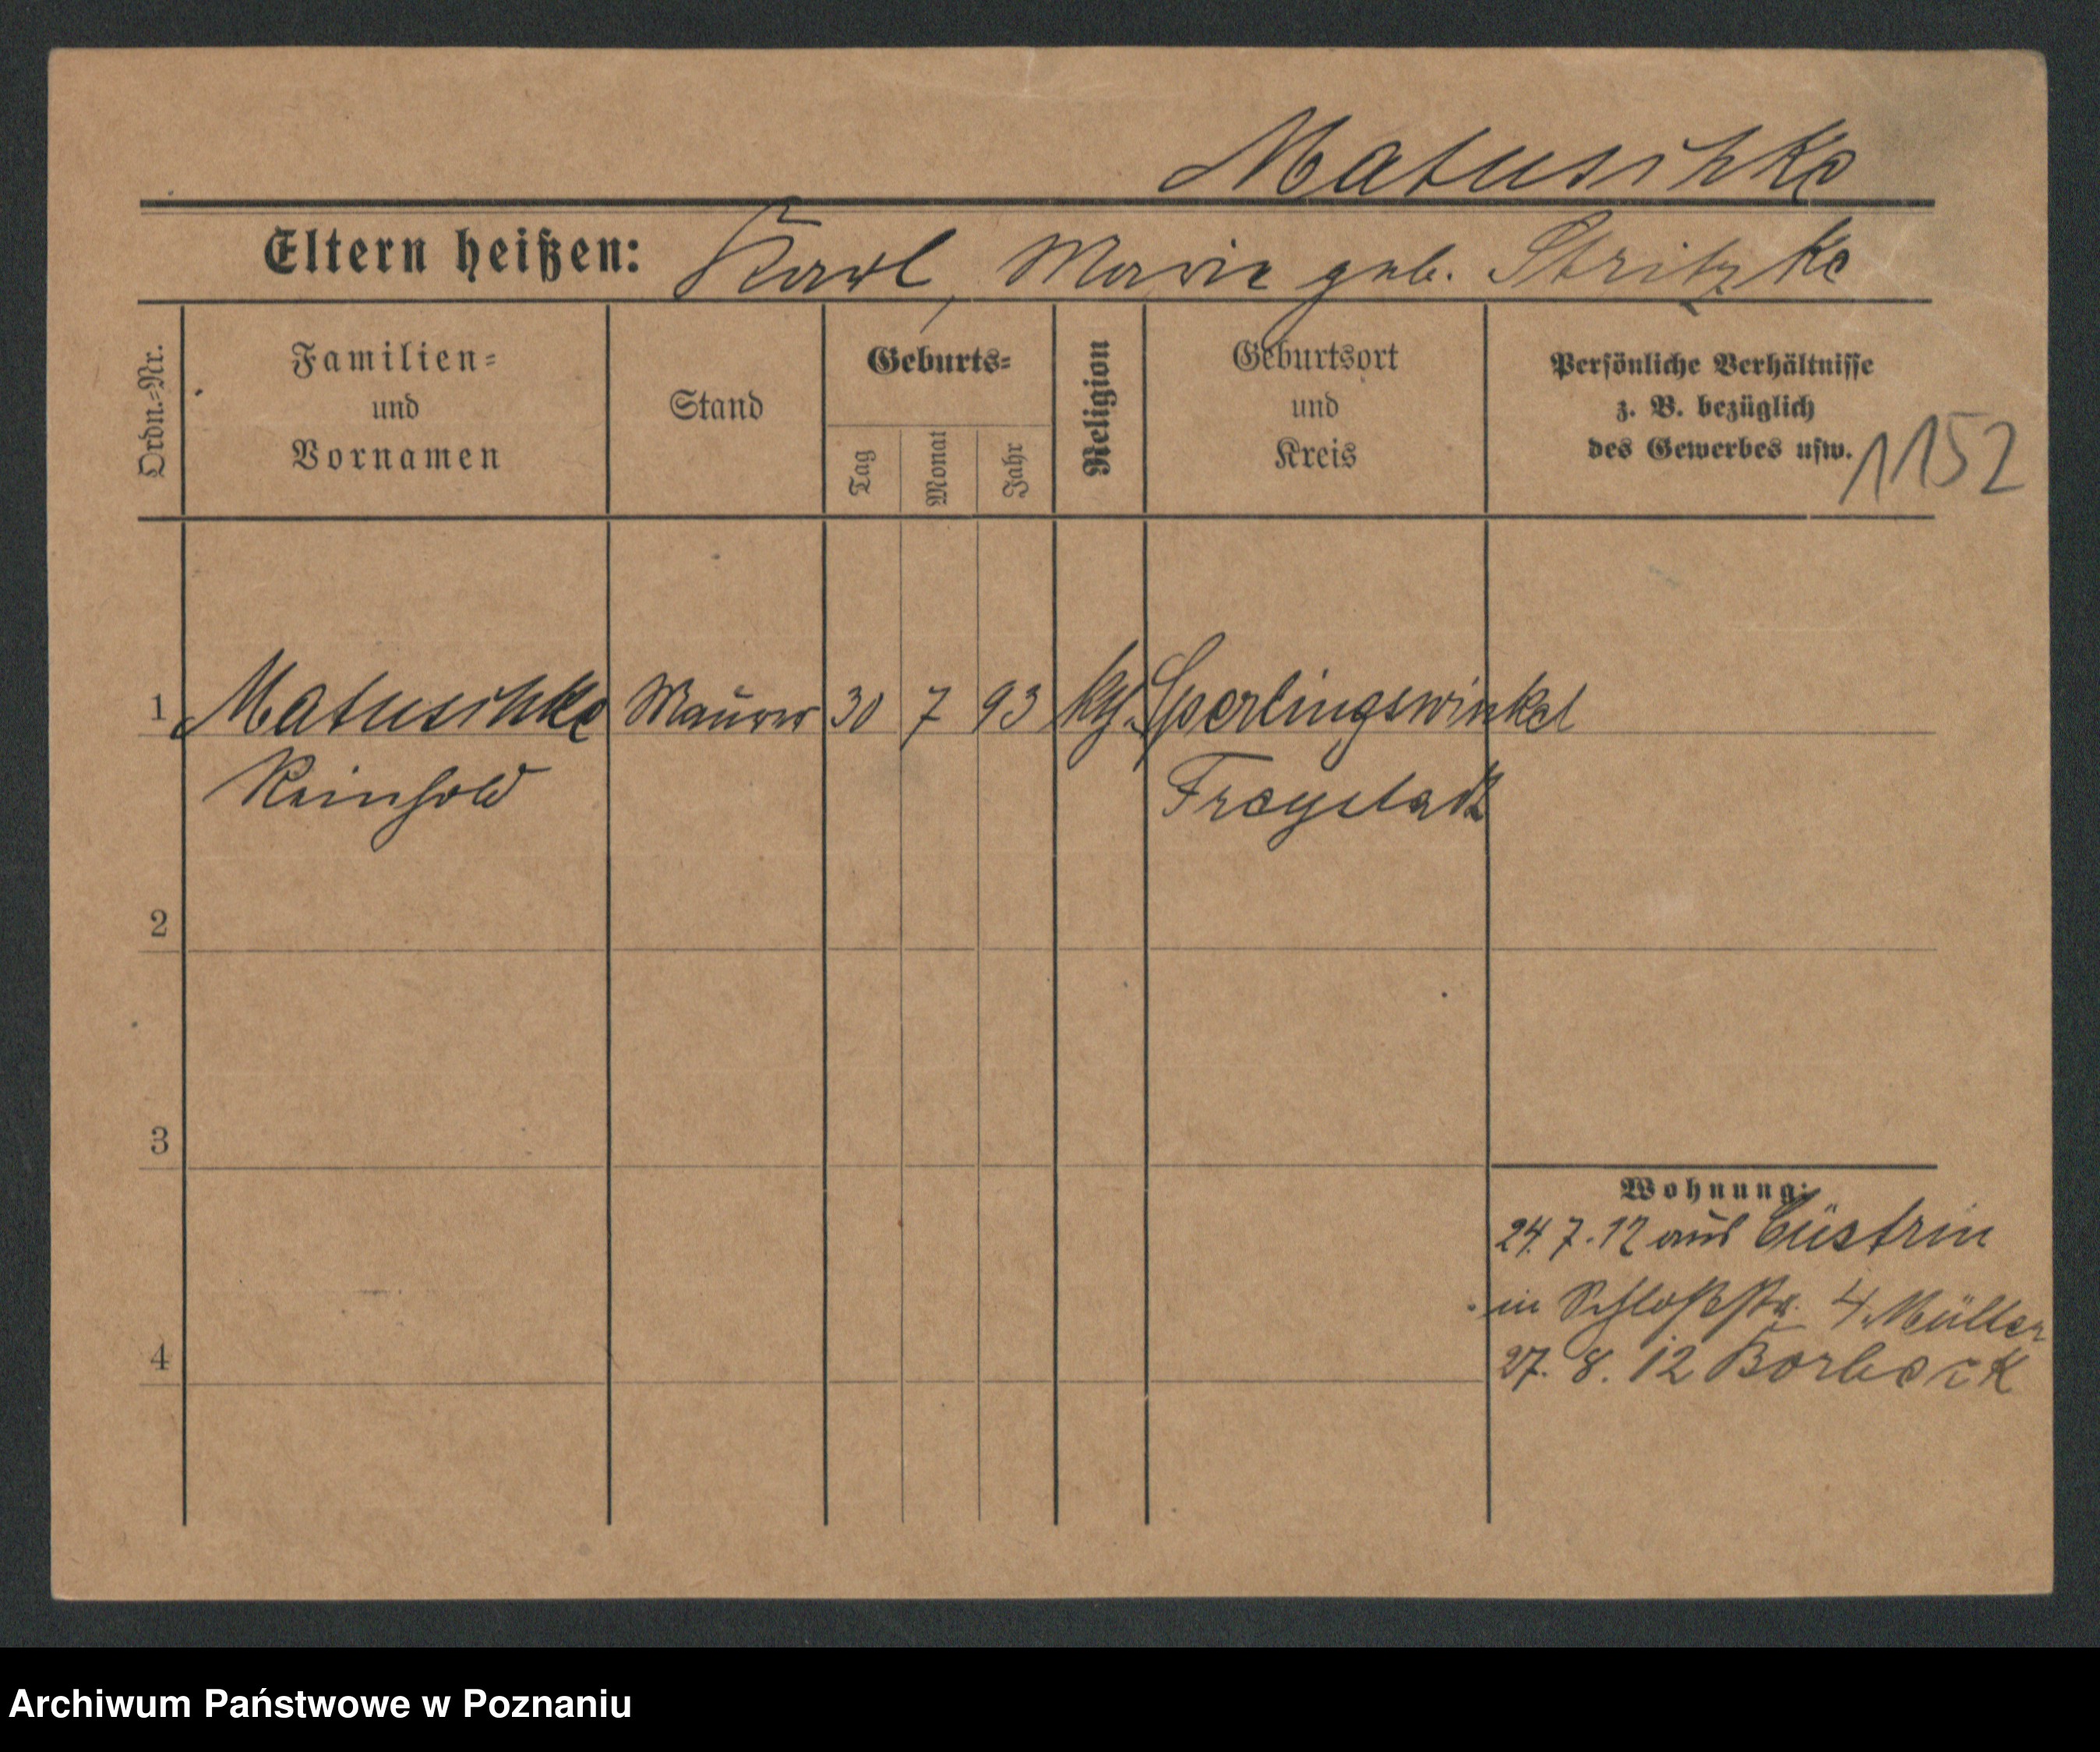 Matuschke
Eltern heißen: Karl, Marie geb. Stritzke
Ordn.=Nr.
Familien=
und
Vornamen
Stand
Geburts=
Tag
Monat
Jahr
Religion
Geburtsort
und
Kreis
Persönliche Verhältnisse
z. B. bezüglich
des Gewerbes usw.
1152
1 Matuschke Maurer 30 7 93 Sperlingswinkel
Reinhold Freystadt
2
3
4
Wohnung:
24.7.12 aus Cüstrin
in Schloßstr. 4 Müller
27. 8. 12 Borbeck
Archiwum Państwowe w Poznaniu